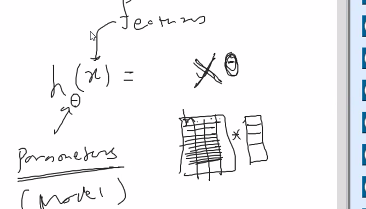 features
h_θ(x) = Xθ
*
Parameters
(Model)